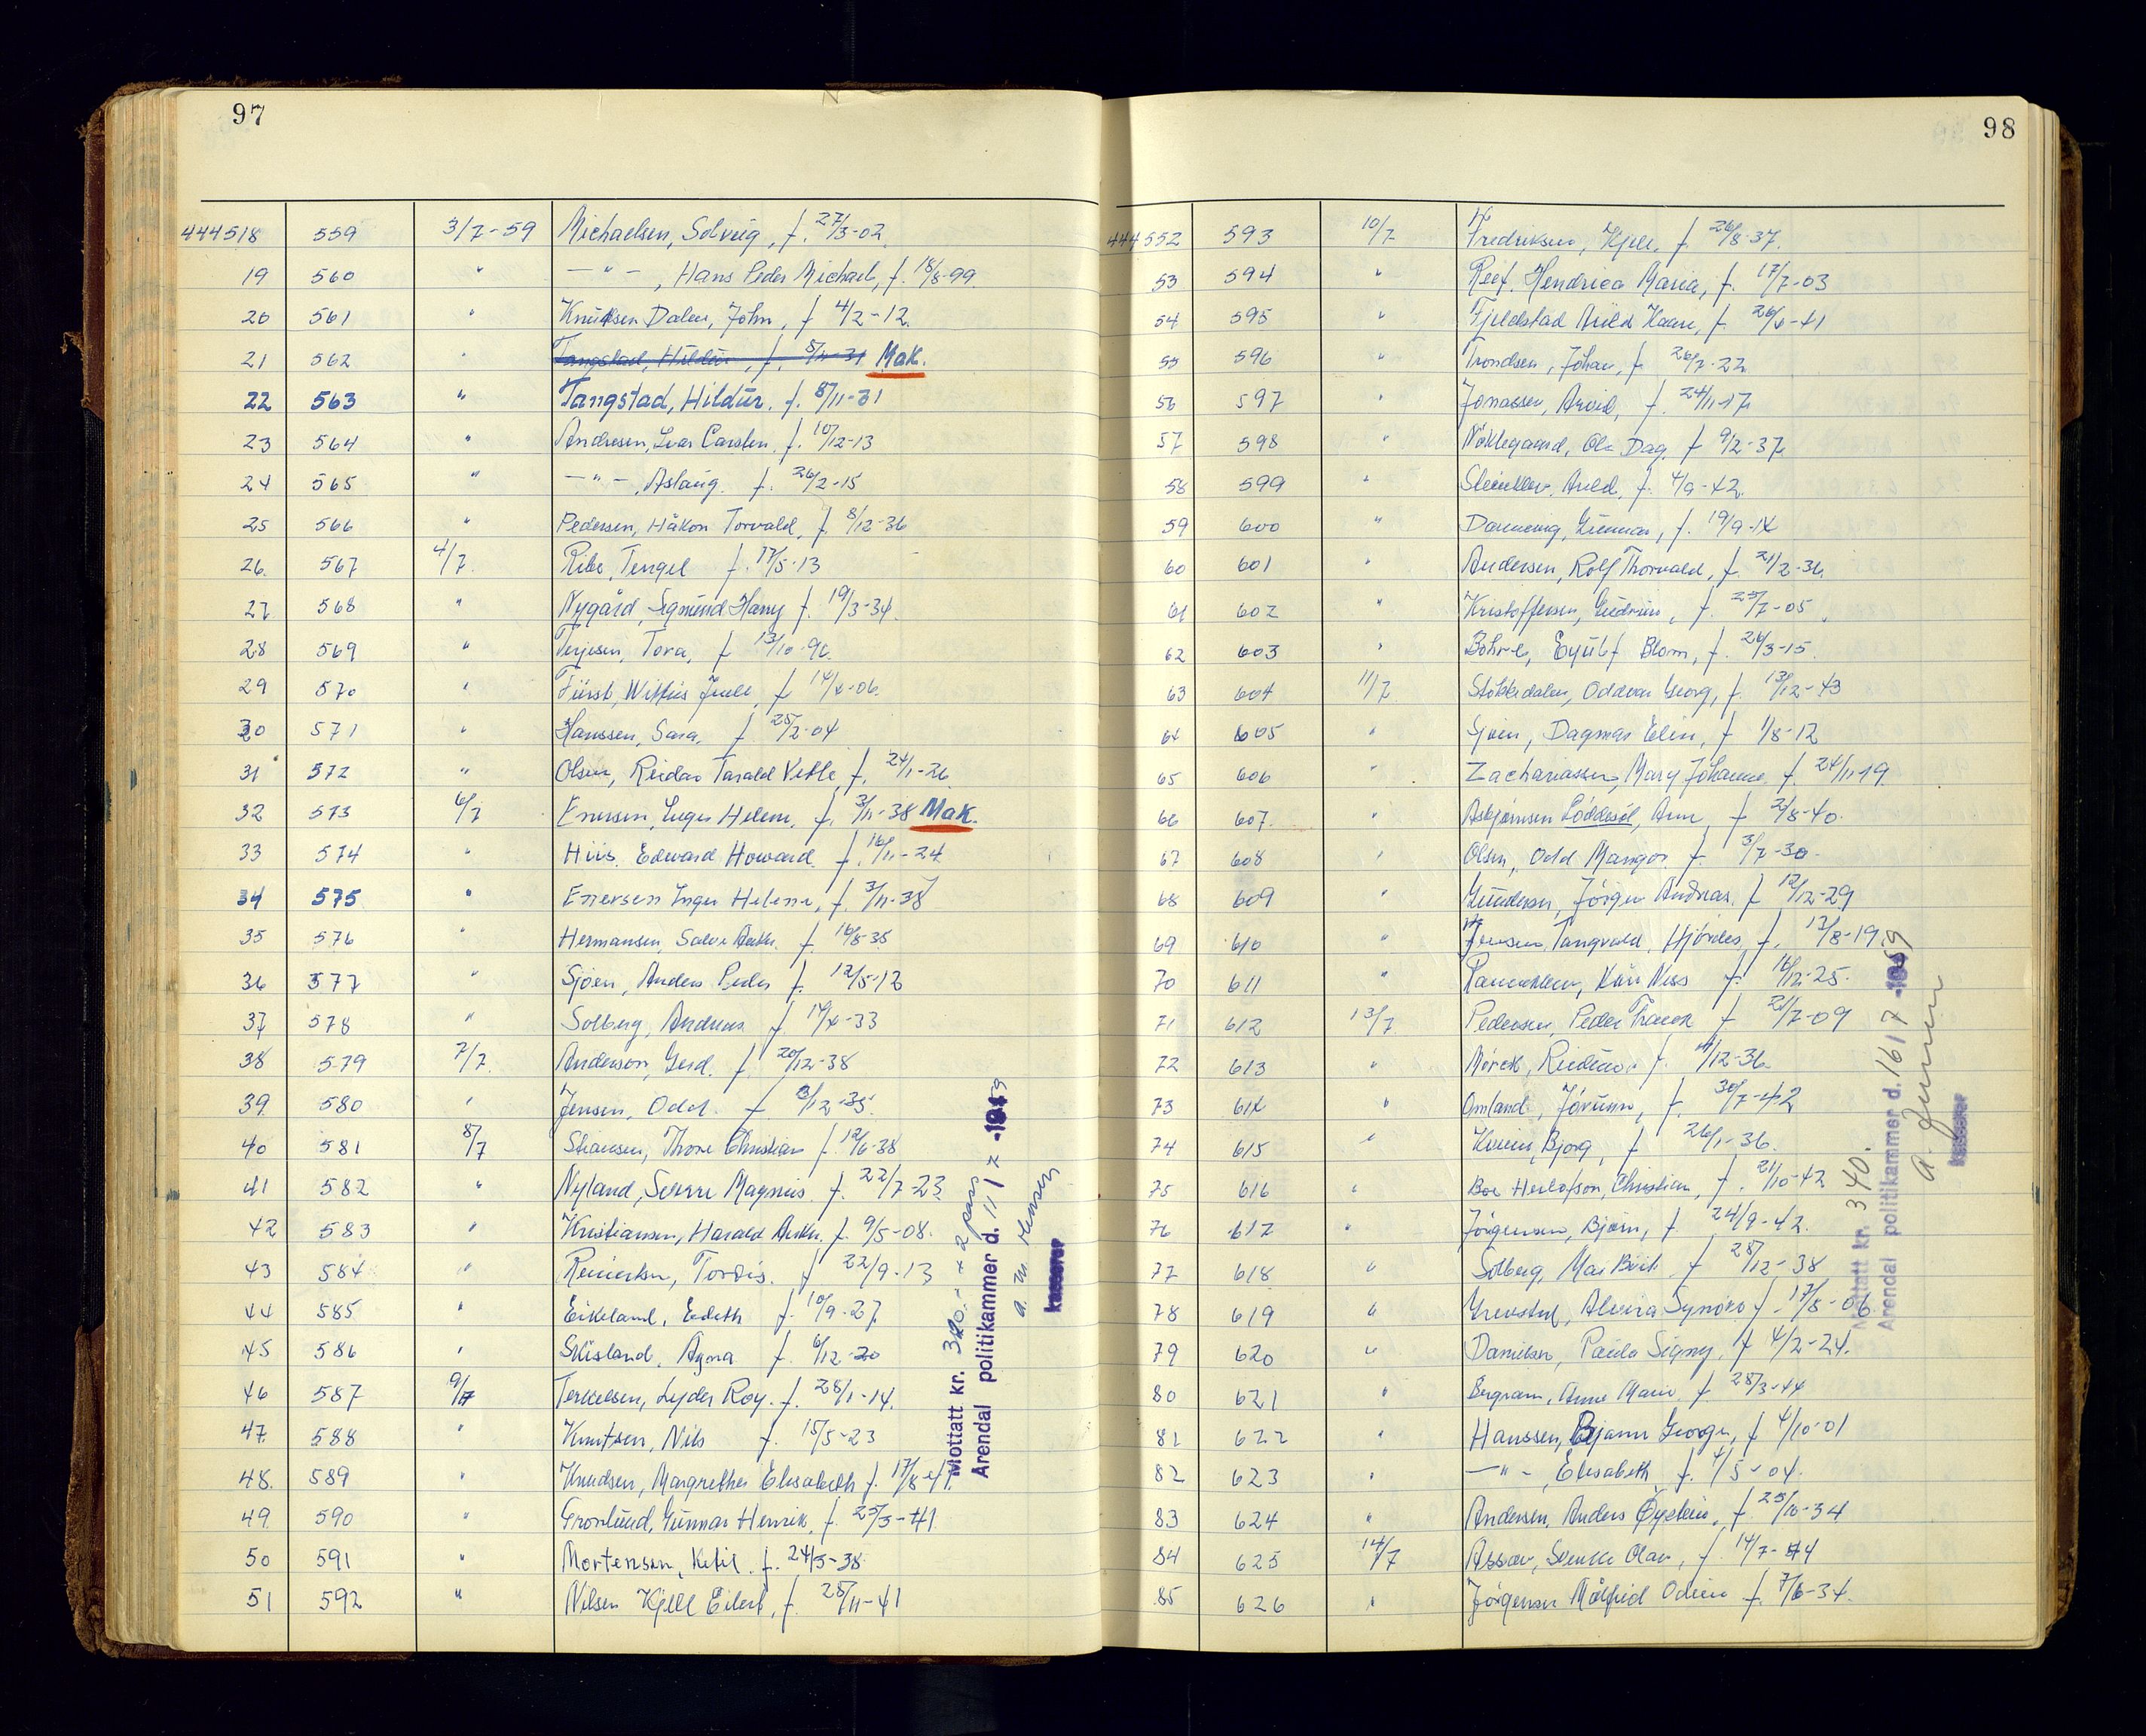 97
444518 559 3/7-59 Michaelsen, Solveig, f. 27/3-02
19 560 " —"—, Hans Peder Michael, f. 18/8-99
20 561 " Knudsen Dalen, John, f 4/2-12
21 562 " Tangstad, Hildur, f. 8/11-31 Mak.
22 563 " Tangstad, Hildur. f. 8/11-31
23 564 " Andresen, Ivar Carsten. f. 10/12-13
24 565 " —"—, Aslaug. f. 26/2-15
25 566 " Pedersen, Håkon Torvald, f. 8/12-36
26. 567 4/7. Ribe, Tengel f. 17/5-13
27 568 " Nygård, Sigmund Harry f. 19/3-34.
28 569 " Terjesen, Tora, f 13/10-90.
29 570 " Fürst, Juell, f 14/4-06.
30 571 " Hanssen, Sara, f. 25/2-04
31 572 " Olsen, Reidar Tarald Vetle, f. 24/1-26
32 573 6/7 Enersen, Inger Helene, f. 3/11-38 Mak.
33 574 " Hiis, Edward Howard. f. 16/11-24
34 575 " Enersen Inger Helene, f. 3/11-38
35 576 " Hermansen, Salve f. 16/8-35
36 577 " Sjøen, Anders Peder f. 12/5-12
37 578 " Solberg, Andreas f. 14/4-33
38 579 7/7. Anderson, Gerd. f. 20/12-38
39. 580 " Jensen, Odd. f 8/12-35.
40 581 8/7 Stiansen, Thore Christian f. 12/6-38
41 582 " Nyland, Sverre Magnus. f. 22/7-23
42 583 " Kristiansen, Harald f. 9/5-08.
43 584 " Tordis. f 22/9-13
44 585 " Eikeland, Edith f. 10/9-27
45 586 " Skisland, Agna f. 6/12-20
46 587 9/7 Terkelsen, Lyder Roy. f. 28/1-14.
47. 588 " Knutsen, Nils f. 15/5-23
48. 589 " Knudsen, Margrethe Elisabeth f. 17/8-47.
49. 590 " Gronlund, Gunnar Henrik, f. 25/3-41
50 591 " Mortensen, Ketil. f. 24/5-38
51 592 " Nilsen Kjell Eilert, f. 28/11-41
Mottatt kr. 320.- 2 pass
Arendal politikammer d. 11/7-1959
kasserer
98
444552 593 10/7 Fredriksen, Kjell, f. 26/8-37.
53 594 " Reef, Hendrica Maria, f. 17/7-03
54 595 " Fjeldstad Arild Haan, f. 26/4-41
55 596 " Trondsen, Johan, f 26/7-22
56 597 " Jonassen, Arvid, f. 24/11-17
57 598 " Nöklegaard, Ola Dag, f 9/2-37
58 599 " Arild, f. 4/9-42.
59 600 " Gunnar, f. 19/9-14
60 601 " Andersen, Rolf Thorvald, f. 21/2-36
61 602 " Kristoffersen, Gudrun, f. 25/7-05
62 603 " Eyulf Blom, f. 26/3-15.
63 604 11/7 Oddvar Georg, f. 13/12-43
64 605 " Sjøen, Dagmar Elin, f 1/8-12
65 606 " Zachariassen, Mary Johanne. f. 24/11-19
66 607. " Asbjørnsen Löddesöl, Ann, f 2/8-40.
67 608 " Olsen, Odd Mangor f. 3/7-30
68 609 " Gundersen, Jörgen Andreas, f 12/12-29
69 610 " Jensen Tangvald, Hjördis, f. 13/8-19
70 611 " Kåre Niss f. 16/12-25.
71 612 13/7 Pedersen, Peder f 21/7-09
72 613 " Mörch, f. 11/12-36
73 614 " Omland, Jórunn, f. 30/7-42
74 615 " Bjorg, f 26/1-36.
75 616 " Boe Herlofson, Christian, f. 21/10-42
76 617 " Jörgensen, Bjørn, f 24/9-42.
77 618 " Solberg, Mai Britt f 28/12-38
78 619 " Synøve f. 17/8-06
79 620 " Danielsen, Paula Signy, f 4/2-24.
80 621 " Bergram, Anne Marie. f. 28/3-44
81 622 " Hanssen, Bjarne George, f 4/10-01
82 623 " —"—, Elisabeth f. 4/5-04.
83 624 " Andersen, Anders Øystein, f 25/10-34
84 625 14/7 Assav, Olav, f. 14/7-44
85 626 " Jörgensen Målfrid Odein f. 7/6-34.
Mottatt kr. 340.
Arendal politikammer d. 16/7-1959
A. Jensen
kasserer